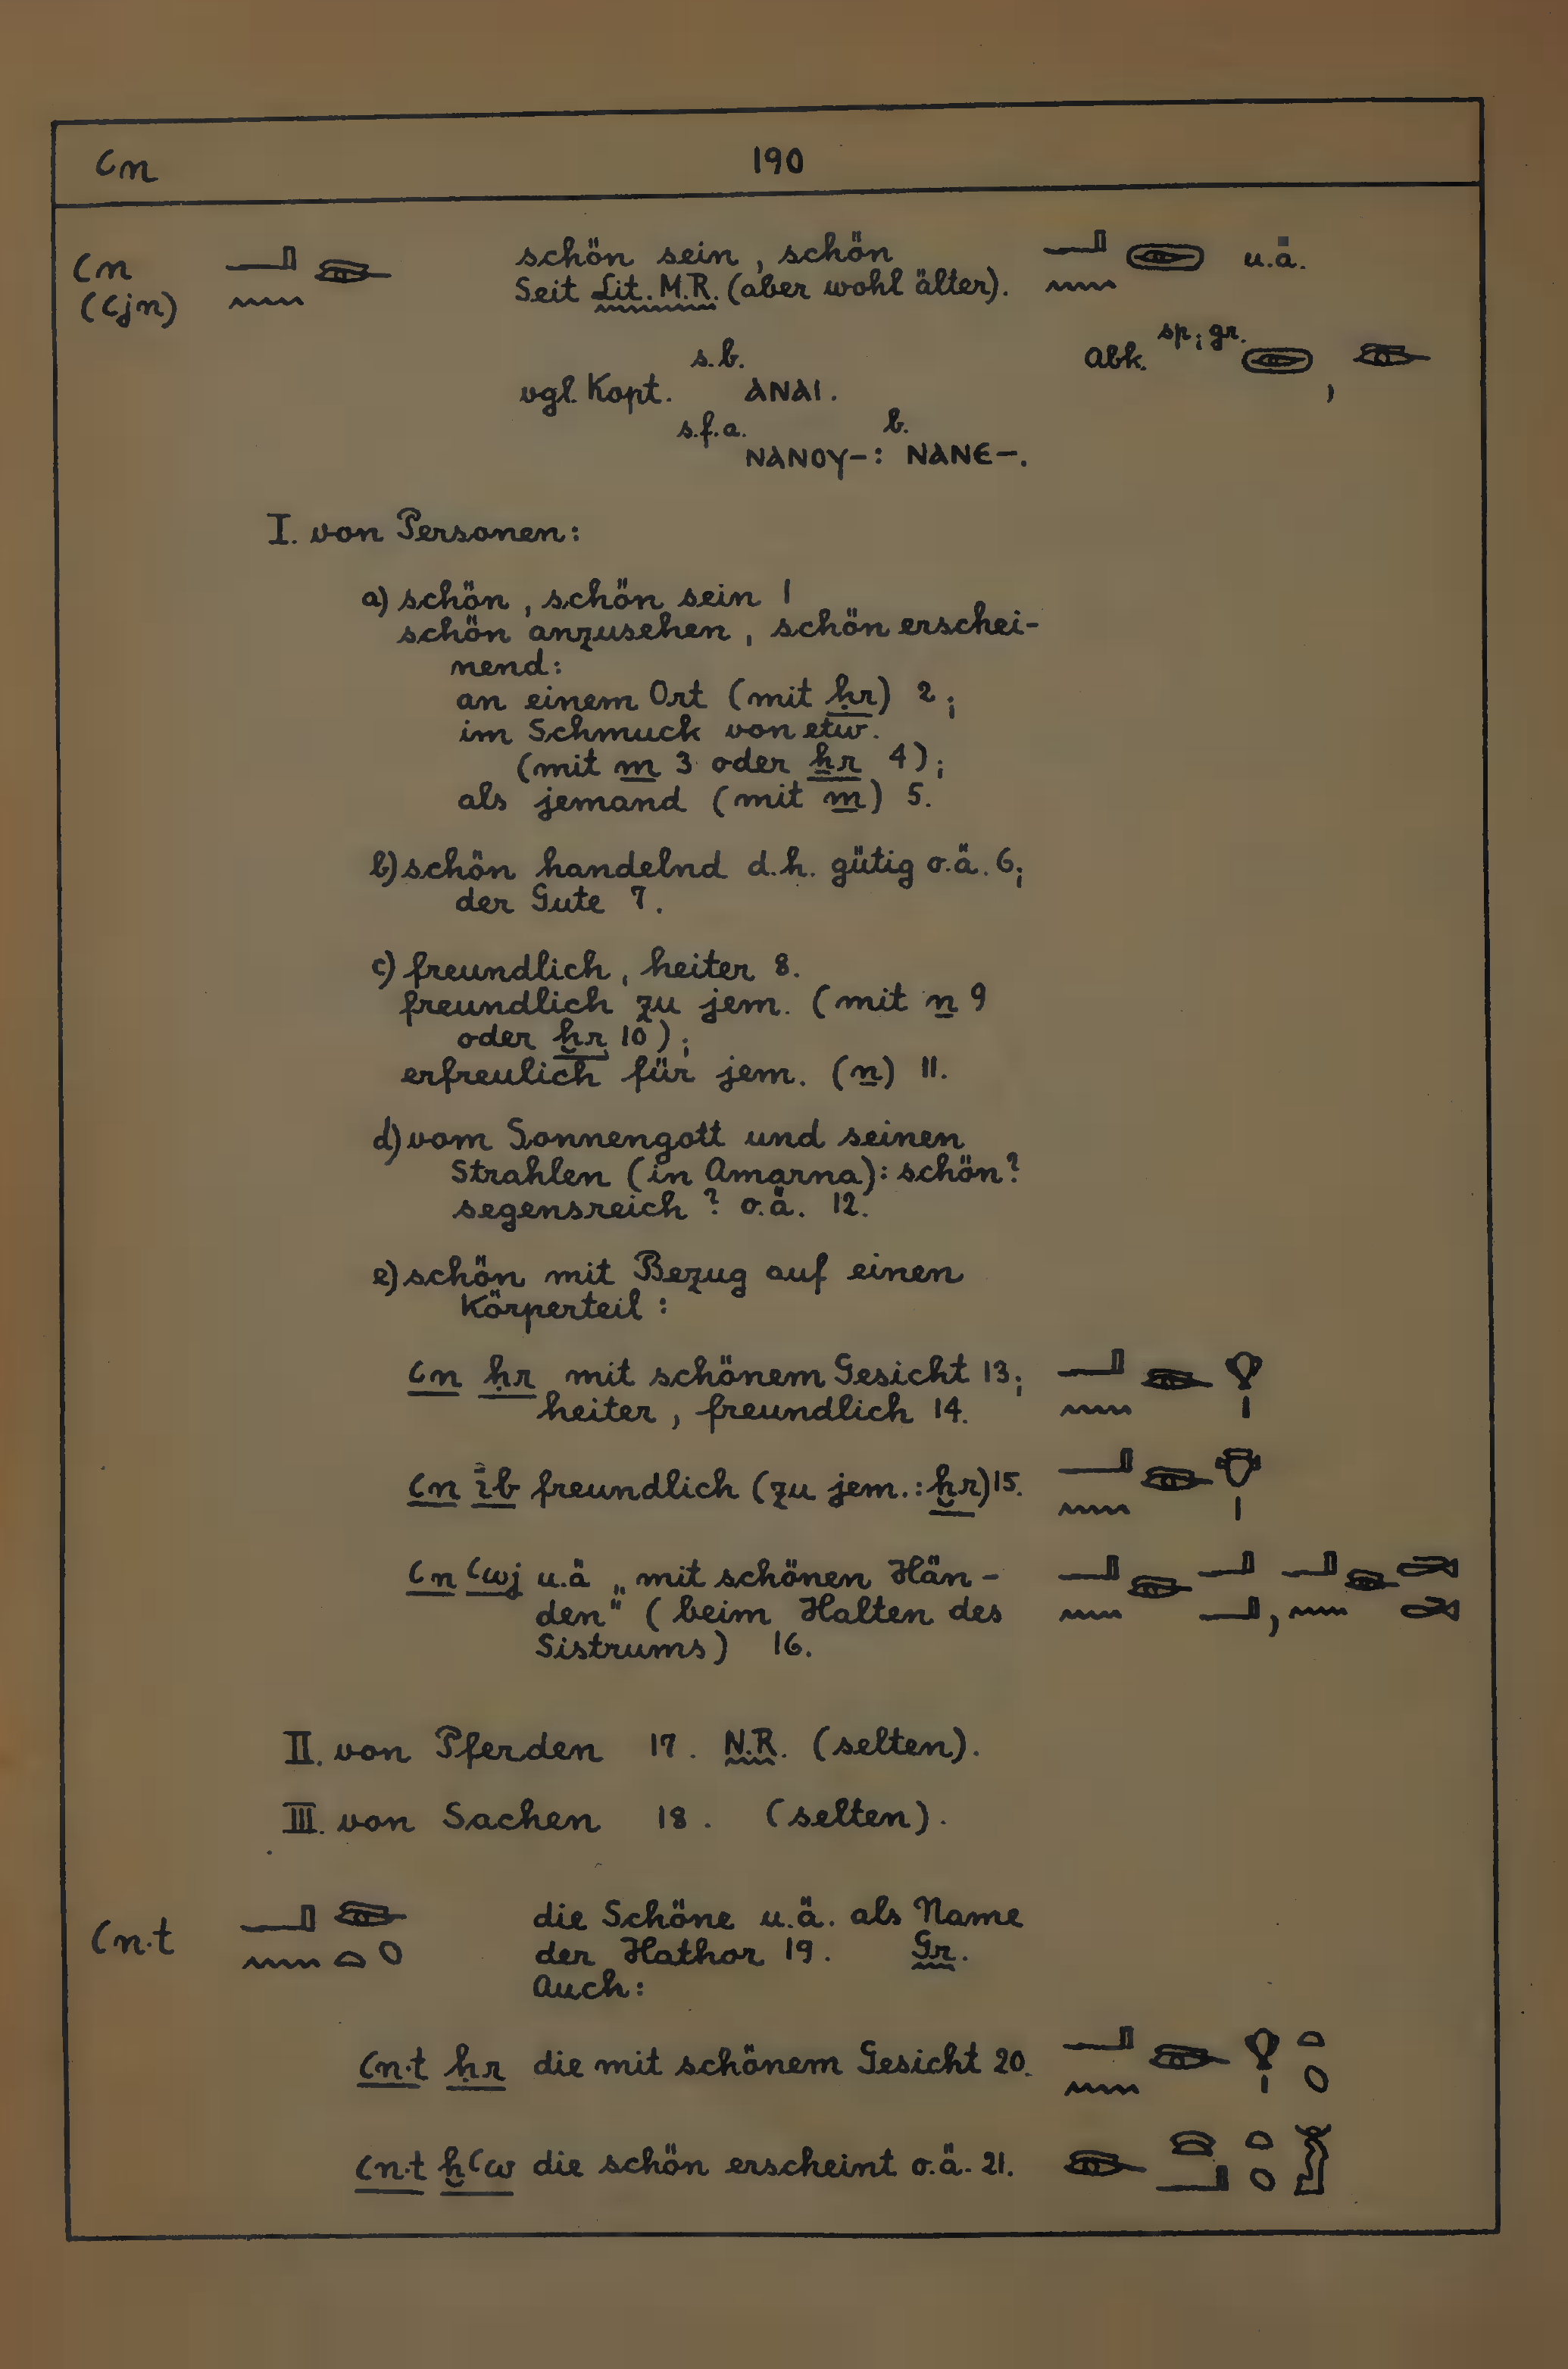 ꜥn 190
ꜥn 𓂝𓈖𓁺 schön sein, schön 𓂝𓈖 u.ä.
(ꜥjn) Seit Lit. M.R. (aber wohl älter).
s.b. Abk. sp; gr. ,
vgl. Kopt. ⲀⲚⲀⲒ.
s.f.a. b.
ⲚⲀⲚⲞⲨ-: ⲚⲀⲚⲈ-.
I. von Personen:
a) schön, schön sein 1
schön anzusehen, schön erschei-
nend:
an einem Ort (mit ḥr) 2;
im Schmuck von etw.
(mit m 3 oder ẖr 4);
als jemand (mit m) 5.
b) schön handelnd d.h. gütig o.ä. 6;
der Gute 7.
c) freundlich, heiter 8.
freundlich zu jem. (mit n 9
oder ḫr 10);
erfreulich für jem. (n) 11.
d) vom Sonnengott und seinen
Strahlen (in Amarna): schön?
segensreich? o.ä. 12.
e) schön mit Bezug auf einen
Körperteil:
ꜥn ḥr mit schönem Gesicht 13; 𓂝𓈖𓁺𓁷𓏤
heiter, freundlich 14.
ꜥn ib freundlich (zu jem.: ḫr) 15. 𓂝𓈖𓁺𓄣𓏤
ꜥn ꜥwj u.ä „mit schönen Hän-
den" (beim Halten des
Sistrums) 16.
II. von Pferden 17. N.R. (selten).
III. von Sachen 18. (selten).
ꜥn.t 𓂝𓈖𓁺𓏏𓆇 die Schöne u.ä. als Name
der Hathor 19. Gr.
Auch:
ꜥn.t ḥr die mit schönem Gesicht 20. 𓂝𓈖𓁺𓁷𓏤𓏏𓆇
ꜥn.t ḫꜥw die schön erscheint o.ä. 21.